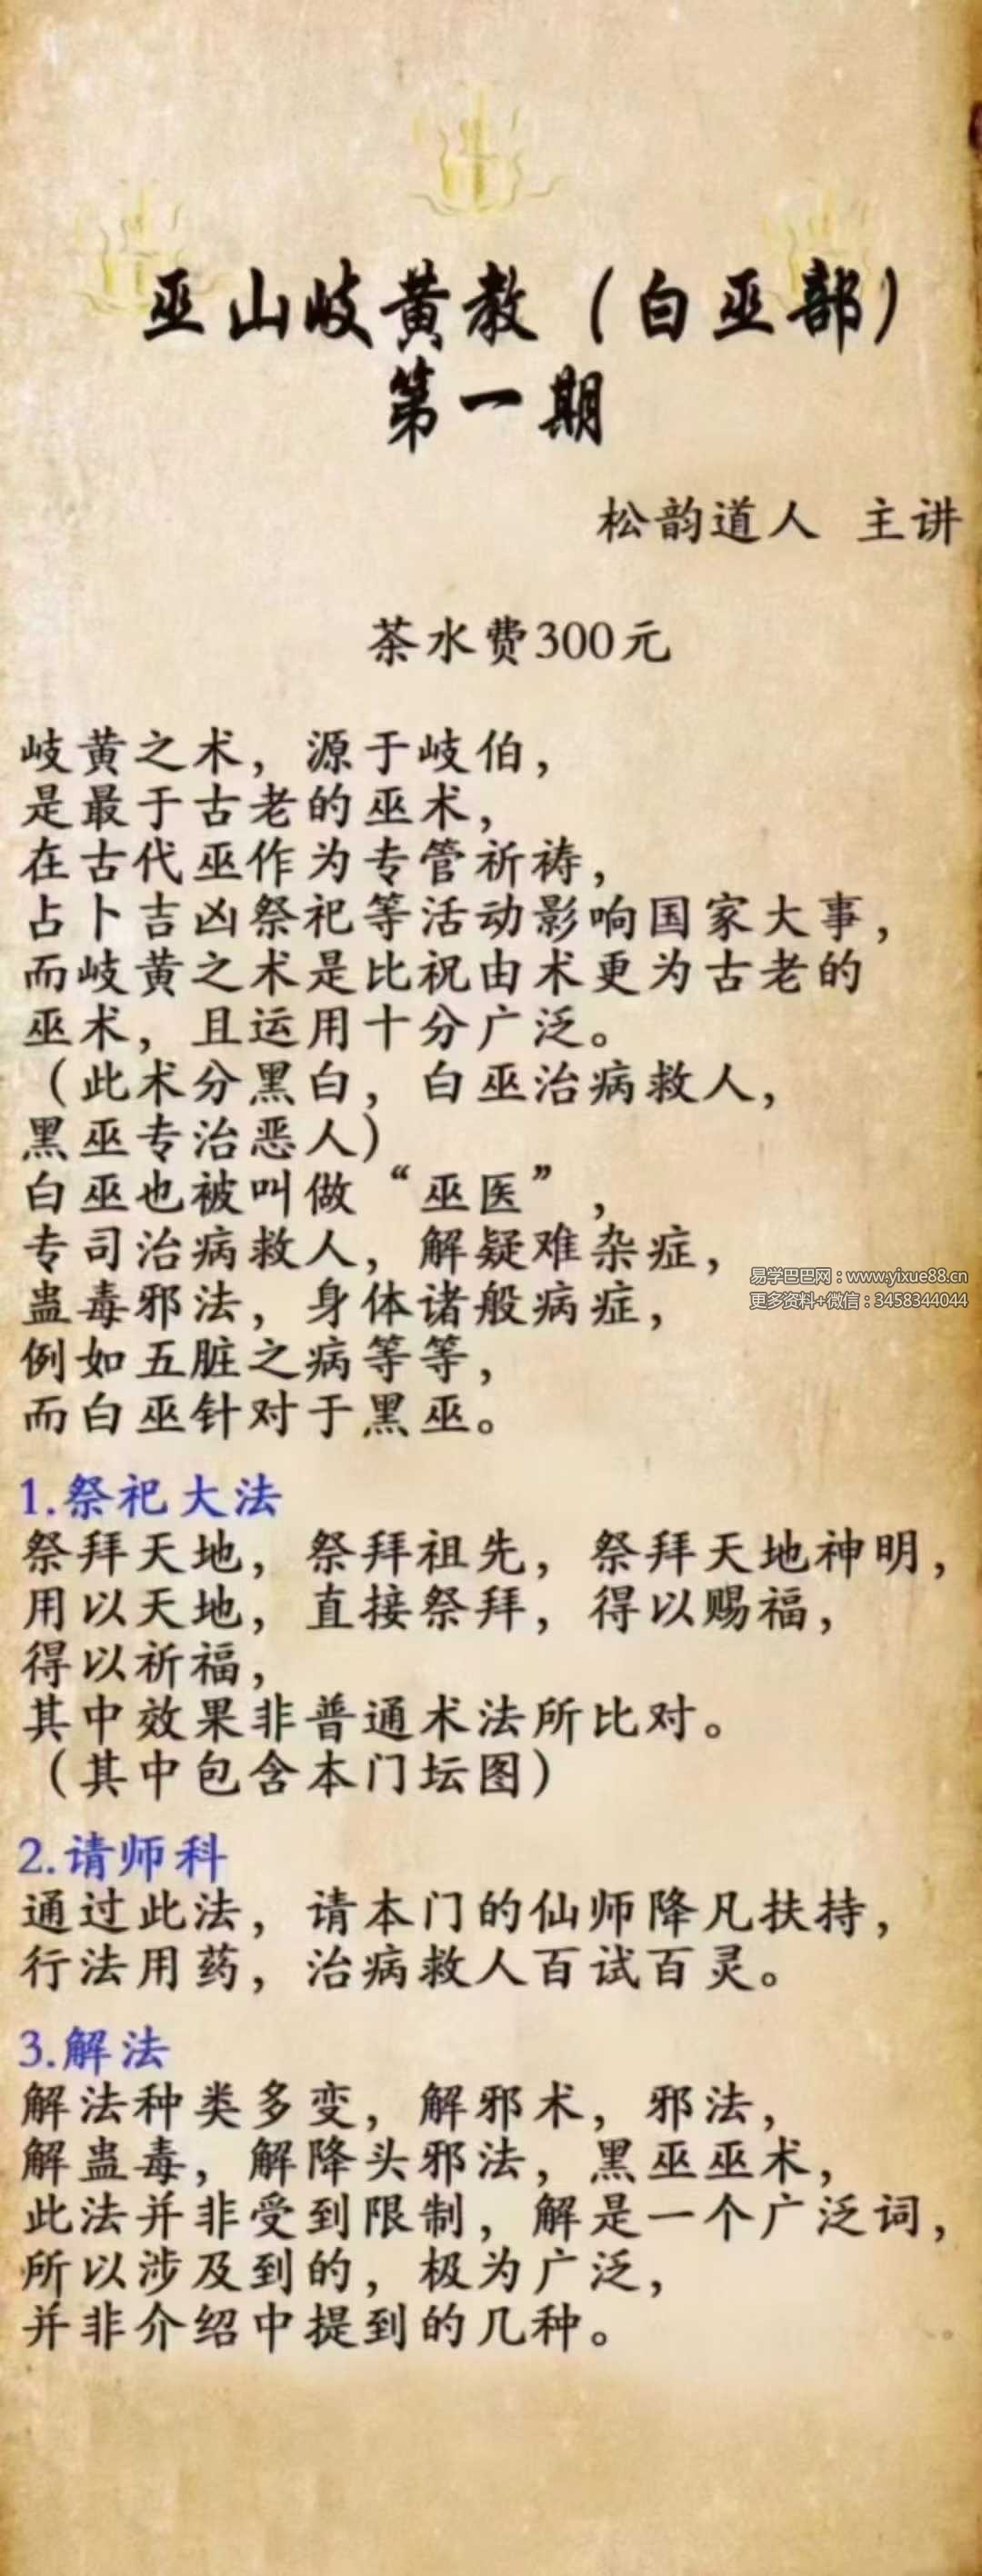 巫山岐黄教（白巫部）
第一期
松韵道人 主讲
茶水费300元
岐黄之术，源于岐伯，
是最于古老的巫术，
在古代巫作为专管祈祷，
占卜吉凶祭祀等活动影响国家大事，
而岐黄之术是比祝由术更为古老的
巫术，且运用十分广泛。
（此术分黑白，白巫治病救人，
黑巫专治恶人）
白巫也被叫做“巫医”，
专司治病救人，解疑难杂症，
蛊毒邪法，身体诸般病症，
易学巴巴网：www.yixue88.cn
更多资料+微信：3458344044
例如五脏之病等等，
而白巫针对于黑巫。
1.祭祀大法
祭拜天地，祭拜祖先，祭拜天地神明，
用以天地，直接祭拜，得以赐福，
得以祈福，
其中效果非普通术法所比对。
（其中包含本门坛图）
2.请师科
通过此法，请本门的仙师降凡扶持，
行法用药，治病救人百试百灵。
3.解法
解法种类多变，解邪术，邪法，
解蛊毒，解降头邪法，黑巫巫术，
此法并非受到限制，解是一个广泛词，
所以涉及到的，极为广泛，
并非介绍中提到的几种。